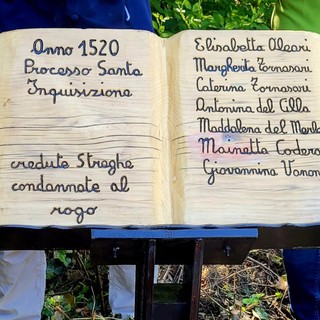 Anno 1520
Processo Santa
Inquisizione
credute Streghe
condannate al
rogo
Elisabetta Oleari
Margherita Fornasari
Caterina Fornasari
Antonina del Cilla
Maddalena del Merlo
Mainetta Coders
Giovannina Vanon